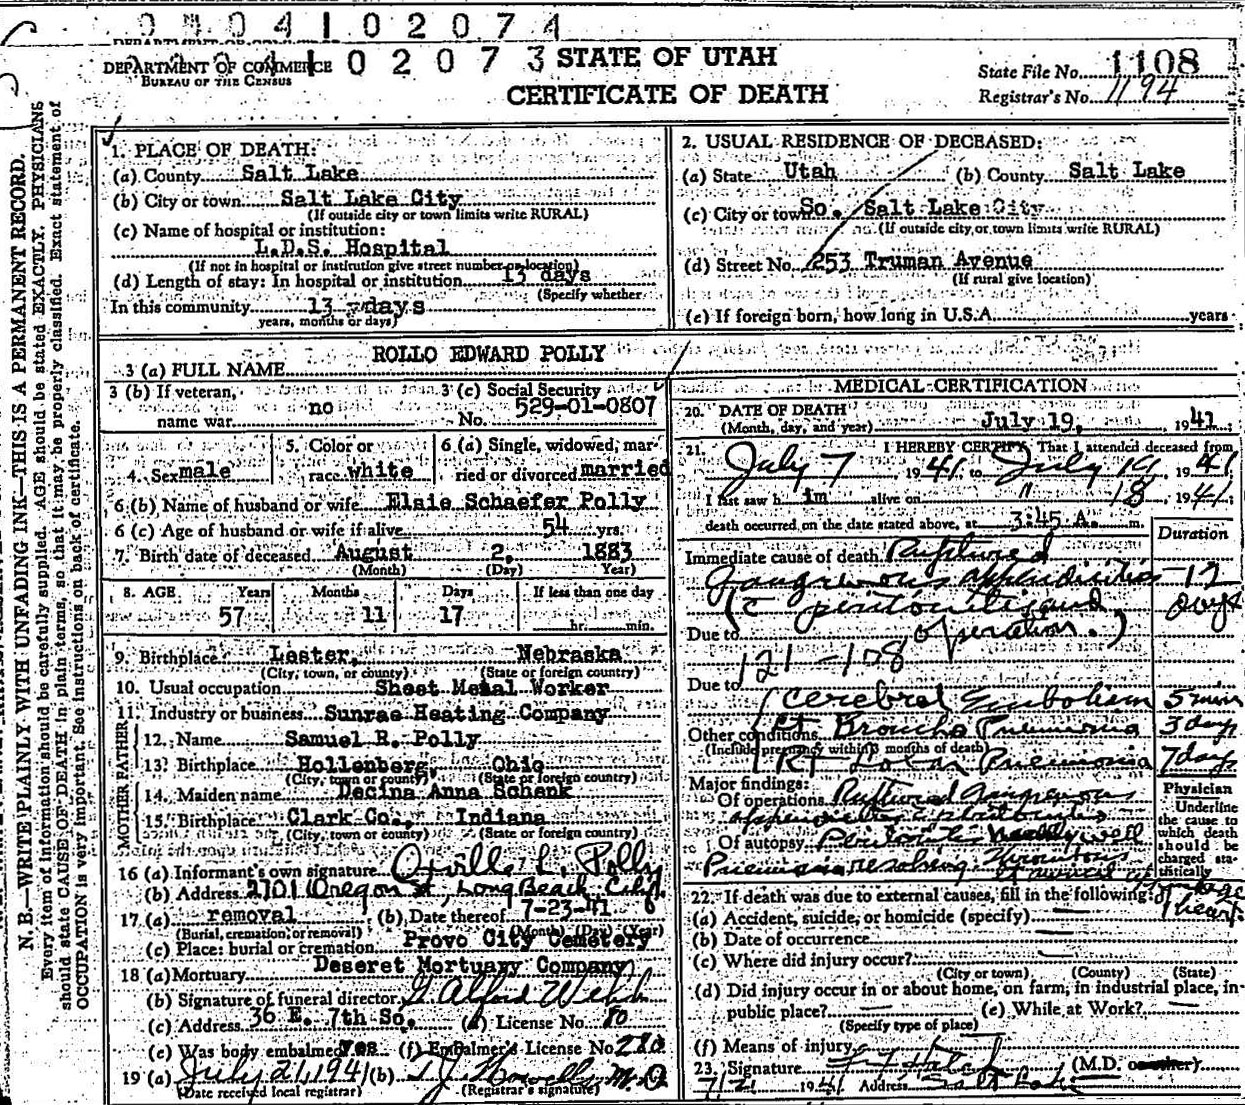 0 0 0 4 1 0 2 0 7 4
DEPARTMENT OF COMMERCE 1 0 2 0 7 3
BUREAU OF THE CENSUS
STATE OF UTAH
CERTIFICATE OF DEATH
State File No. 1108
Registrar's No. 1194
N. B.—WRITE PLAINLY WITH UNFADING INK—THIS IS A PERMANENT RECORD.
Every item of information should be carefully supplied. AGE should be stated EXACTLY. PHYSICIANS
should state CAUSE OF DEATH in plain terms, so that it may be properly classified. Exact statement of
OCCUPATION is very important. See instructions on back of certificate.
1. PLACE OF DEATH:
(a) County Salt Lake
(b) City or town Salt Lake City
(If outside city or town limits write RURAL)
(c) Name of hospital or institution:
L.D.S. Hospital
(If not in hospital or institution give street number or location)
(d) Length of stay: In hospital or institution 13 days
(Specify whether
In this community 13 days
years, months or days)
2. USUAL RESIDENCE OF DECEASED:
(a) State Utah (b) County Salt Lake
(c) City or town So. Salt Lake City
(If outside city or town limits write RURAL)
(d) Street No. 253 Truman Avenue
(If rural give location)
(e) If foreign born, how long in U.S.A. years
3 (a) FULL NAME ROLLO EDWARD POLLY
3 (b) If veteran, name war no
3 (c) Social Security No. 529-01-0807
4. Sex male
5. Color or race white
6 (a) Single, widowed, married or divorced married
6 (b) Name of husband or wife Elsie Schaefer Polly
6 (c) Age of husband or wife if alive 54 yrs.
7. Birth date of deceased August 2, 1883
(Month) (Day) (Year)
8. AGE Years Months Days If less than one day
57 11 17 hr. min.
9. Birthplace Lester, Nebraska
(City, town, or county) (State or foreign country)
10. Usual occupation Sheet Metal Worker
11. Industry or business Sunrae Heating Company
FATHER
12. Name Samuel R. Polly
13. Birthplace Hollenberg Ohio
(City, town or county) (State or foreign country)
MOTHER
14. Maiden name Decina Anna Schenk
15. Birthplace Clark Co., Indiana
(City, town or county) (State or foreign country)
16 (a) Informant's own signature Orville L. Polly
(b) Address 2701 Oregon St, Long Beach, Calif
17 (a) removal (b) Date thereof 7-23-41
(Burial, cremation, or removal) (Month) (Day) (Year)
(c) Place: burial or cremation Provo City Cemetery
18 (a) Mortuary Deseret Mortuary Company
(b) Signature of funeral director Alford Webb
(c) Address 36 E. 7th So. (d) License No. 80
(e) Was body embalmed Yes (f) Embalmer's License No. 280
19 (a) July 21, 1941 (b) M.D
(Date received local registrar) (Registrar's signature)
MEDICAL CERTIFICATION
20. DATE OF DEATH
(Month, day, and year) July 19, 1941
21. I HEREBY CERTIFY That I attended deceased from
July 7 1941 to July 19 1941
I last saw him alive on " 18, 1941
death occurred on the date stated above, at 3:45 A. m.
Duration
Immediate cause of death Ruptured
gangrenous appendicitis - 12
(c peritonitis and days
Due to operation.)
121-108
Due to
Cerebral Embolism 5 min
Other conditions Lt Broncho Pneumonia 3 days
(Include pregnancy within 3 months of death)
Rt Lobar Pneumonia 7 days
Major findings:
Of operations Ruptured Gangrenous
appendicitis c peritonitis
Of autopsy Peritonitis nearly well
Pneumonia resolving. Thrombus
heart
Physician
Underline
the cause to
which death
should be
charged sta-
tistically
22. If death was due to external causes, fill in the following:
(a) Accident, suicide, or homicide (specify) —
(b) Date of occurrence —
(c) Where did injury occur? —
(City or town) (County) (State)
(d) Did injury occur in or about home, on farm, in industrial place, in
public place? — (e) While at Work? —
(Specify type of place)
(f) Means of injury
23. Signature F F Hatch (M.D. or other)
7/21 1941 Address Salt Lake